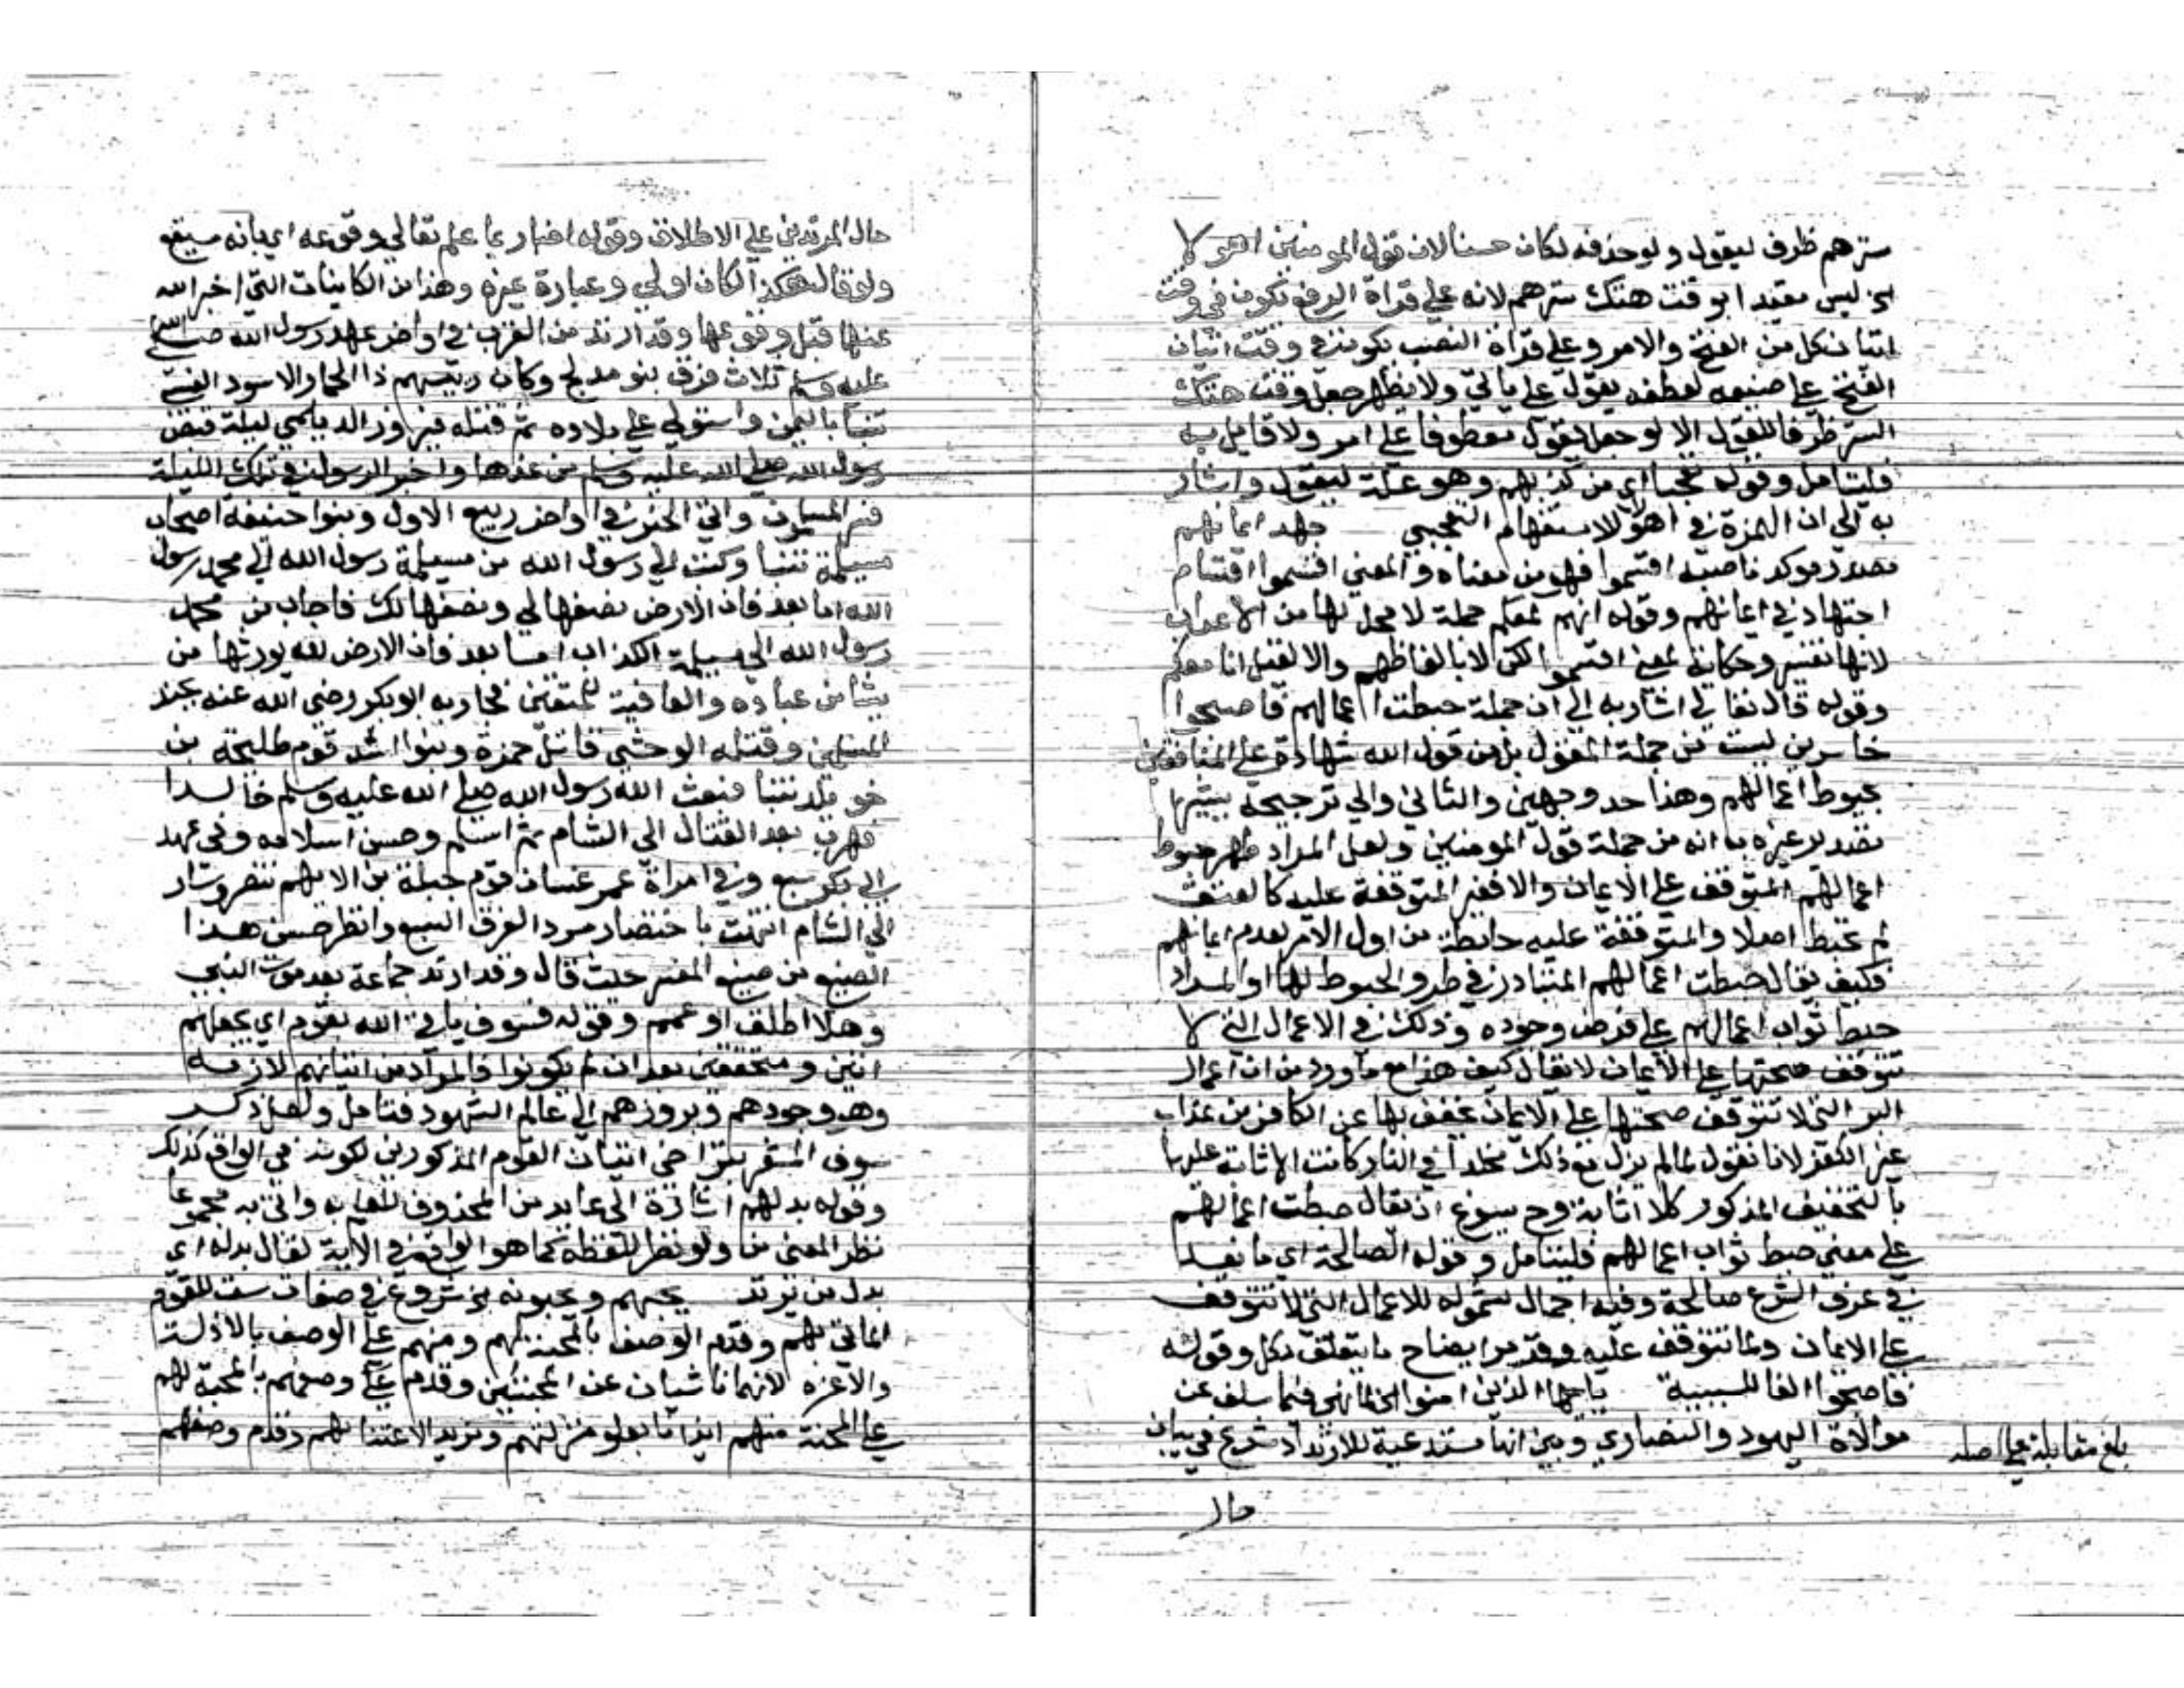 سترهم ظرف ليقول ولو حذفه لكان حسنا لان قول المومنين اهولا
الخ ليس مقيد ابوقت هتك سترهم لانه على قراة الرفع تكون في وقت
اتيان كل من الفتح والامر وعلى قراة النصب بكونه في وقت اتيان
الفتح على صنيعه لعطفه يقول على ياتي ولا يظهر جعل وقت هتك
الستر ظرفا للقول الا لو جعل يقول معطوفا على امر ولا قايل به
فليتامل وقوله عجبا اي من كذبهم وهو علة ليقول واشار
به الى ان الهمزة في اهولا للاستفهام التعجبي جهد ايمانهم
مصدر موكد ناصبه اقسموا فهو من معناه والمعنى اقسموا اقسام
اجتهاد في ايمانهم وقوله انهم لمعكم جملة لا محل لها من الاعراب
لانها تفسير وحكاية لمعنى اقسموا لكن لا بالفاظهم والا لقيل انا معكم
وقوله قال تعالى اشار به الى ان جملة حبطت اعمالهم فاصبحوا
خاسرين ليست من جملة المقول بل من قول الله شهادة على المنافقين
بحبوط اعمالهم وهذا احد وجهين والثاني والي ترجيحه يشير
تصدير غيره به انه من جملة قول المومنين ولعل المراد ظهر حبوط
اعمالهم المتوقف على الايمان والا فغير المتوقفة عليه كالعتق
لم تحبط اصلا والمتوقفة عليه حابطة من اول الامر لعدم ايمانهم
فكيف يقال حبطت اعمالهم المتبادر في طرو الحبوط لها او المراد
حبط ثواب اعمالهم على فرض وجوده وذلك في الاعمال التي لا
تتوقف صحتها على الايمان لا يقال كيف هذا مع ما ورد من ان اعمال
البر التي لا تتوقف صحتها على الايمان يخفف بها عن الكافر من عذاب
غير الكفر لانا نقول لما لم يزل مع ذلك مخلدا في النار كانت الاثابة عليها
بالتخفيف المذكور كلا اثابة وح يسوغ ان يقال حبطت اعمالهم
على معنى حبط ثواب اعمالهم فليتامل وقوله الصالحة اي ما يعد
في عرف الشرع صالحة وفيه اجمال لشموله للاعمال التي لا تتوقف
على الايمان ولما تتوقف عليه وقد مر ايضاح ما يتعلق بكل وقوله
فاصبحوا الفا للسببية يا ايها الذين امنوا الخ لما نهى فيما سلف عن
موالاة اليهود والنصارى وبين انها مستدعية للارتداد شرع في بيان
حال
بلغ مقابلة على اصله
حال المرتدين على الاطلاق وقوله اخبار بما علم تعالى وقوعه اي بانه سيقع
ولو قال هكذا لكان اولى وعبارة غيره وهذا من الكاينات التي اخبر الله
عنها قبل وقوعها وقد ارتد من العرب في اواخر عهد رسول الله صلى الله
عليه وسلم ثلاث فرق بنو مدلج وكان رييسهم ذا الحمار الاسود العنسي
تنبا باليمن واستولى على بلاده ثم قتله فيروز الديلمي ليلة قبض
رسول الله صلى الله عليه وسلم من غدها واخبر الرسول في تلك الليلة
فسر المسلمون واتى الخبر في اواخر ربيع الاول وبنوا حنيفة اصحاب
مسيلمة تنبا وكتب الى رسول الله من مسيلمة رسول الله الى محمد رسول
الله اما بعد فان الارض نصفها لي ونصفها لك فاجاب من محمد
رسول الله الى مسيلمة الكذاب اما بعد فان الارض لله يورثها من
يشا من عباده والعاقبة للمتقين فحاربه ابو بكر رضي الله عنه بجند
المسلمين وقتله الوحشي قاتل حمزة وبنوا اسد قوم طليحة بن
خويلد تنبا فبعث الله رسول الله صلى الله عليه وسلم خالدا
فهرب بعد القتال الى الشام ثم اسلم وحسن اسلامه وفي عهد
ابي بكر سبع وفي امراة عمر غسان قوم جبلة بن الايهم تنصر وسار
الى الشام انتهت باختصار سرد الفرق السبع وانظر حسن هذا
الصنيع من صنيع المفسر حيث قال وقد ارتد جماعة بعد موت النبي
وهلا اطلق او عمم وقوله فسوف ياتي الله بقوم اي يجعلهم
اتين ومتحققين بعد ان لم يكونوا فالمراد من اتيانهم لازمه
وهو وجودهم وبروزهم الى عالم الشهود فتامل ولعل ذكر
سوف المشعر بتراخي اتيان القوم المذكورين لكونه في الواقع كذلك
وقوله بدلهم اشارة الى عايد من المحذوف للعلم به واتى به مجموعا
نظر المعنى من ولو نظر للفظه كما هو الواقع في الاية لقال بدله اي
بدل من يرتد يحبهم ويحبونه الخ شروع في صفات ست للقوم
الماتي بهم وقدم الوصف بالمحبة لهم ومنهم على الوصف بالاذلة
والاعزة لانهما ناشيان عن المحبتين وقدم على وصفهم بالمحبة لهم
على المحبة منهم ايذانا بعلو منزلتهم ومزيد الاعتنا بهم وقدم وصفهم